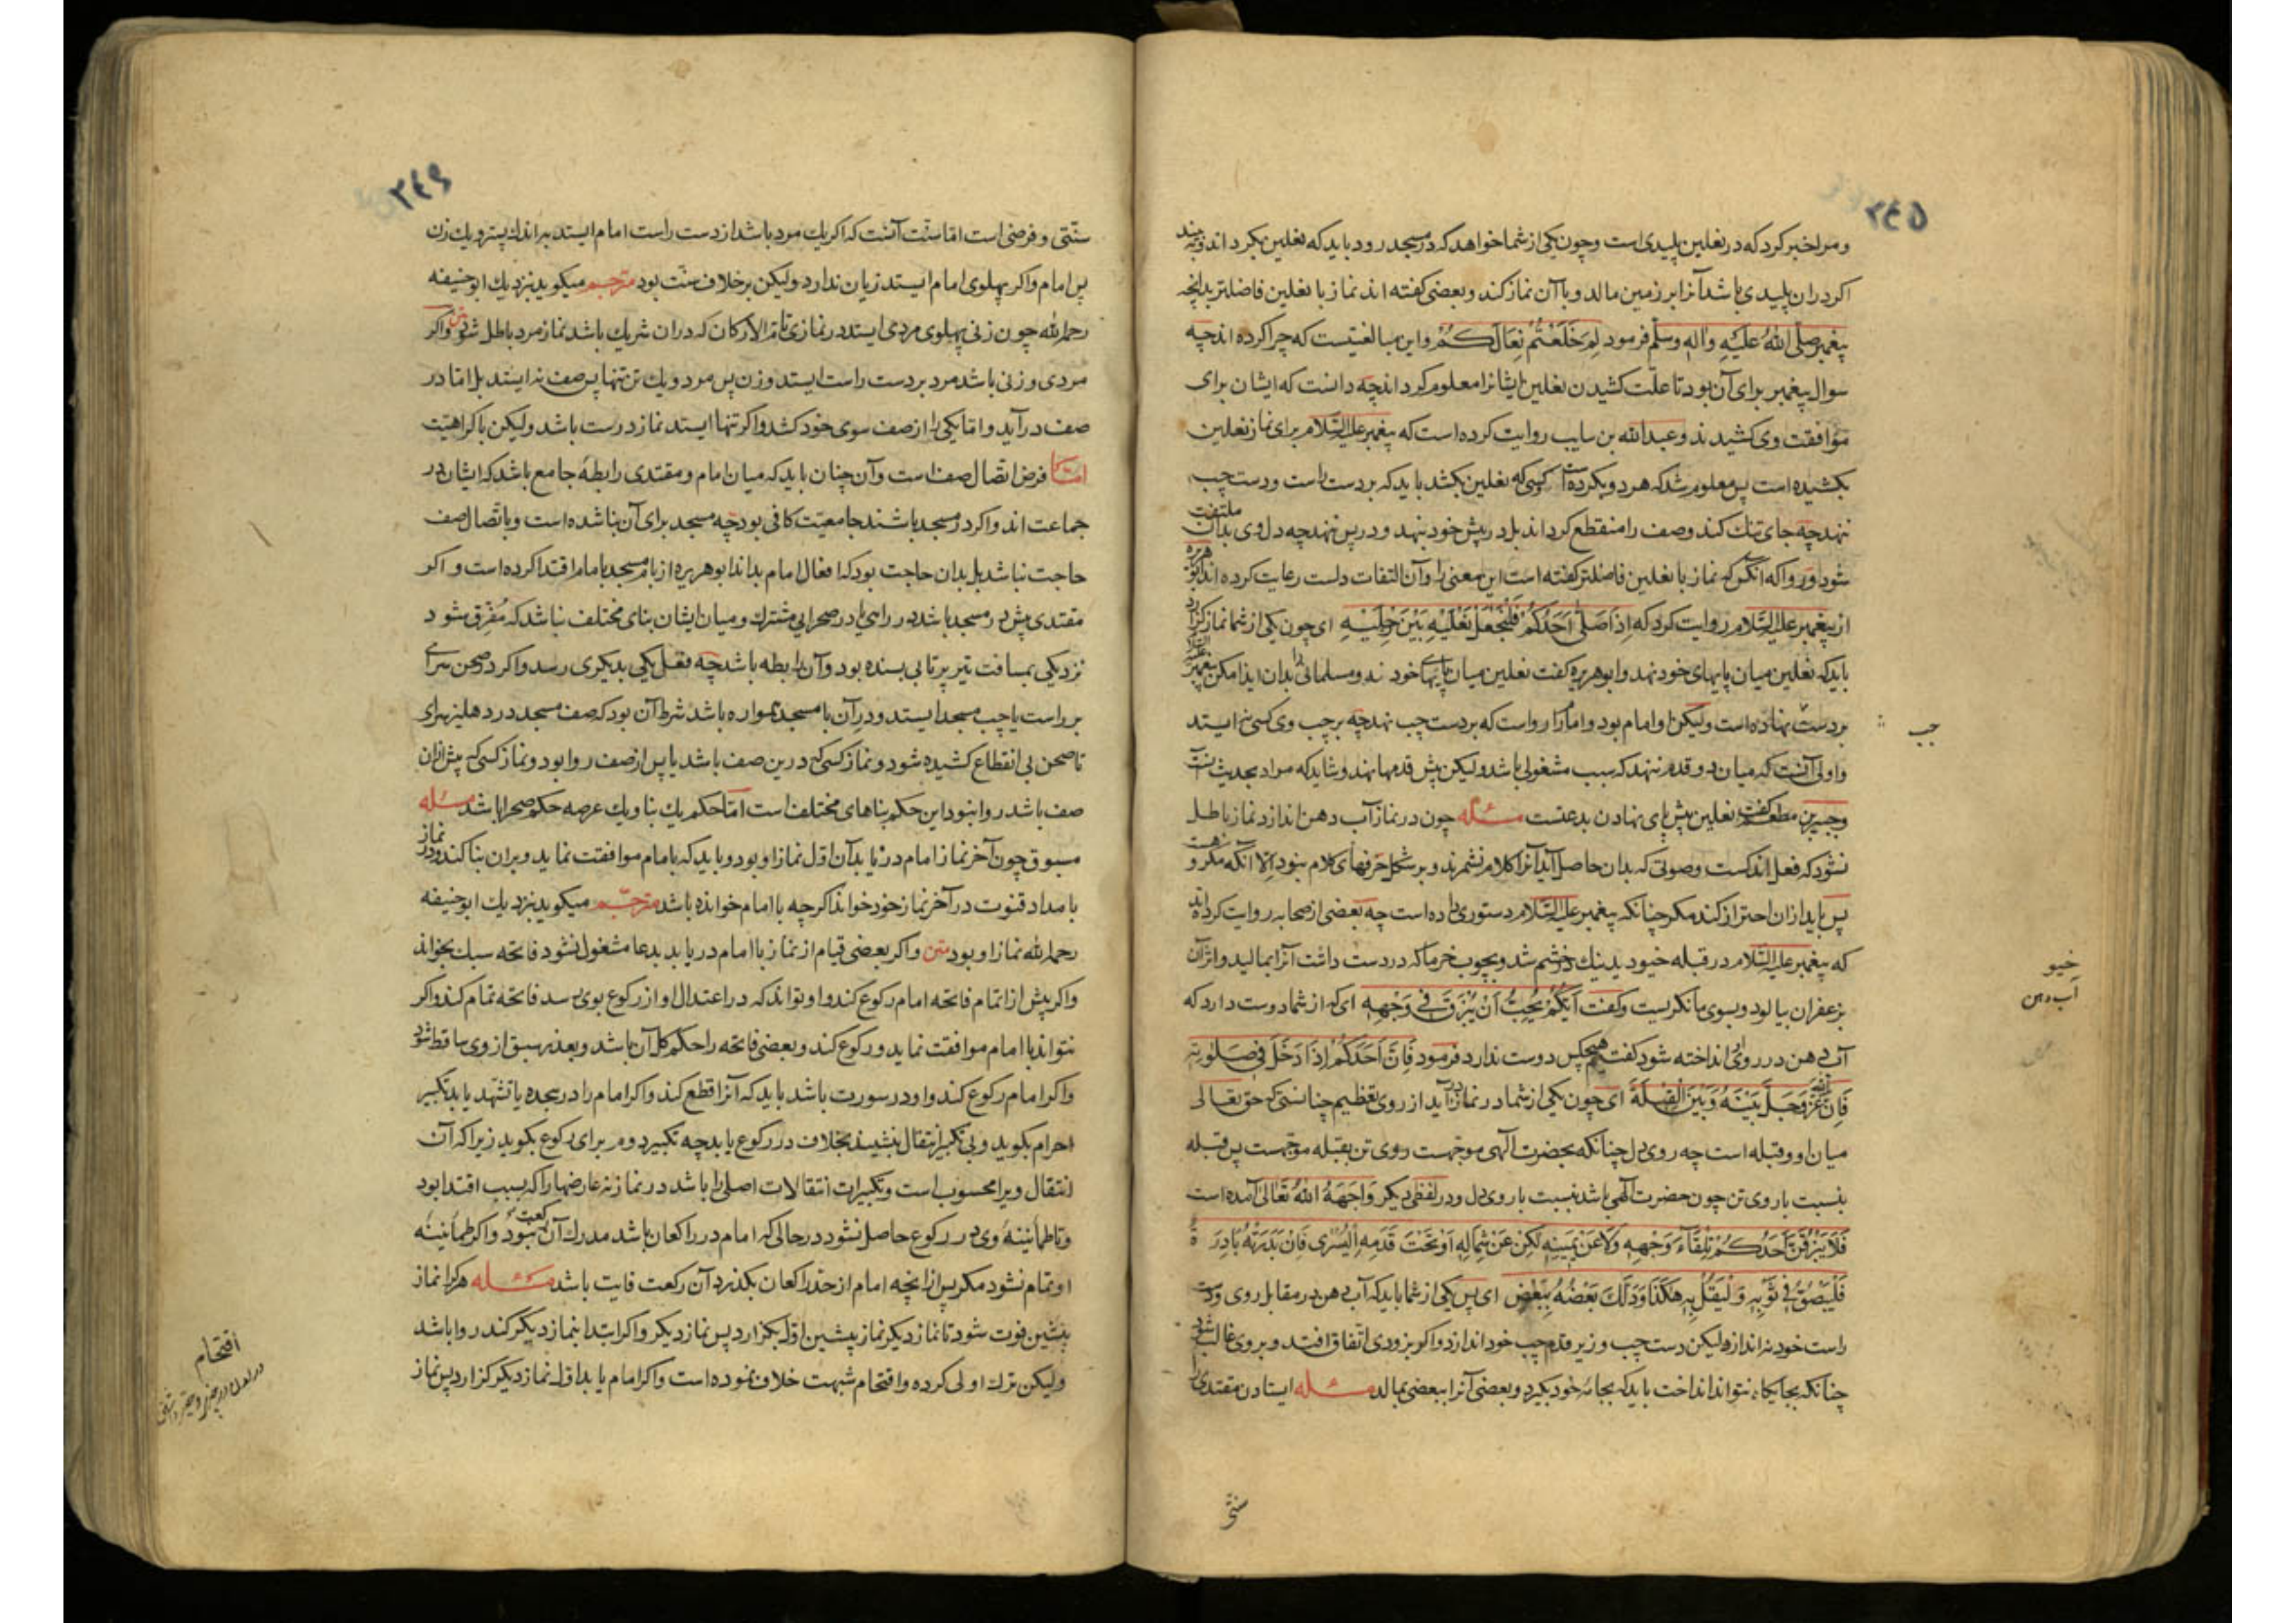 ۲۴۵
و مرا خبر کرد که در نعلین پلیدی است و چون یکی از شما خواهد که در مسجد رود باید که نعلین بگرداند و ببیند
اگر در ان پلیدی باشد آنرا بر زمین مالد و با آن نماز کند و بعضی گفته اند نماز با نعلین فاضلتر بدانچه
پیغمبر صلی الله علیه واله وسلم فرمود لِمَ خَلَعْتُمْ نِعَالَكُمْ و این مبالغتیست که چرا کرده اند چه
سوال پیغمبر برای آن بود تا علّت کشیدن نعلین ایشانرا معلوم گرداند چه دانست که ایشان برای
موافقت وی کشیدند و عبدالله بن سایب روایت کرده است که پیغمبر علیه السّلام برای نماز نعلین
بکشیده است پس معلوم شد که هر دو بکرده است کسی که نعلین بکشد باید که بر دست راست و دست چپ
ننهد چه جای تنک کند و صف را منقطع گرداند بل در پیش خود بنهد و در پس ننهد چه دل وی بدان ملتفت
شود و روا که آنکس که نماز با نعلین فاضلتر گفته است این معنی را و آن التفات دلست رعایت کرده اند ابو هریره
از پیغمبر علیه السّلام روایت کرد که اِذَا صَلّٰی اَحَدُكُمْ فَلْيَجْعَلْ نَعْلَيْهِ بَيْنَ رِجْلَيْهِ ای چون یکی از شما نماز گزارد
باید که نعلین میان پایهای خود نهد و ابو هریره گفت نعلین میان پایهای خود نه و مسلمانی را بدان ایذا مکن پیغمبر علیه السلام
بر دست چپ نهاده است ولیکن او امام بود و امام را رواست که بر دست چپ نهد چه بر چپ وی کسی نه ایستد
و اولی آنست که میان دو قدم ننهد که سبب مشغولی باشد ولیکن پیش قدمها نهد و شاید که مراد بحدیث آنست
و جبیر بن مطعم گفت نعلین پیش پای نهادن بدعتست مسئله چون در نماز آب دهن اندازد نماز باطل
نشود که فعل اندکست و صوتی که بدان حاصل آید آنرا کلام نشمرند و بر شکل حرفهای کلام نبود الا آنکه مکروهست
پس باید از ان احتراز کند مگر چنانکه پیغمبر علیه السّلام دستوری داده است چه بعضی از صحابه روایت کرده اند
که پیغمبر علیه السّلام در قبله خیو دید نیک در خشم شد و بچوب خرما که در دست داشت آنرا بمالید و اثر آن
بزعفران بیالود و بسوی ما نگریست و گفت اَيُّكُمْ يُحِبُّ اَنْ يُبْزَقَ فِي وَجْهِهِ ای که از شما دوست دارد که
آب دهن در روی او انداخته شود گفتیم هیچکس دوست ندارد فرمود فَاِنَّ اَحَدَكُمْ اِذَا دَخَلَ فِي صَلٰوتِهِ
فَاِنَّ اللّٰهَ عَزَّ وَجَلَّ بَيْنَهُ وَبَيْنَ الْقِبْلَةِ ای چون یکی از شما در نماز در آید از روی تعظیم چنانستی که حق تعالی
میان او و قبله است چه روی دل چنانکه بحضرت آلهی موجهست روی تن بقبله موجهست پس قبله
بنسبت با روی تن چون حضرت آلهی باشد بنسبت با روی دل و در لفظی دیگر وَاجَهَهُ اللّٰهُ تَعَالٰی آمده است
فَلَا يَبْزُقَنَّ اَحَدُكُمْ تِلْقَآءَ وَجْهِهِ وَلَا عَنْ يَمِينِهِ لٰكِنْ عَنْ شِمَالِهِ اَوْ تَحْتَ قَدَمِهِ الْيُسْرٰی فَاِنْ بَدَرَتْهُ بَادِرَةٌ
فَلْيَبْصُقْ فِي ثَوْبِهِ وَلْيَقُلْ بِهِ هٰكَذَا وَدَلَكَ بَعْضَهُ بِبَعْضٍ ای پس یکی از شما باید که آب دهن در مقابل روی و دست
راست خود نه اندازد لیکن دست چپ و زیر قدم چپ خود اندازد و اگر بزودی اتفاق افتد و بر وی غالب شود
چنانکه بجایگاه نتواند انداخت باید که بجامه خود بگیرد و بعضی آنرا ببعضی بمالد مسئله ایستادن مقتدی را
چپ
خیو
آب دهن
سنتی
۲۴۶
سنّتی و فرضی است امّا سنّت آنست که اگر یک مرد باشد از دست راست امام ایستد به اندک پستر و یک زن
پس امام و اگر پهلوی امام ایستد زیان ندارد ولیکن بر خلاف سنّت بود مترجم میگوید نزدیک ابو حنیفه
رحمه الله چون زنی پهلوی مردی ایستد در نمازی تام الارکان که دران شریک باشد نماز مرد باطل شود متن و اگر
مردی و زنی باشد مرد بر دست راست ایستد و زن پس مرد و یک تن تنها پس صف نه ایستد بل اما در
صف در آید و اما یکی را از صف سوی خود کشد و اگر تنها ایستد نماز درست باشد ولیکن با کراهیّت
امّا فرض اتّصال صف است و آن چنان باید که میان امام و مقتدی رابطهٔ جامع باشد که ایشان در
جماعت اند و اگر در مسجد باشند جامعیّت کافی بود چه مسجد برای آن بنا شده است و باتّصال صف
حاجت نباشد بل بدان حاجت بود که افعال امام بداند ابو هریره از بام مسجد بامام اقتدا کرده است و اگر
مقتدی پیش در مسجد باشد در راهی یا در صحرایی مشترک و میان ایشان بنای مختلف نباشد که مُفَرِّق شود
نزدیکی بمسافت تیر پرتابی بسنده بود و آن رابطه باشد چه فعل یکی بدیگری رسد و اگر در صحن سرای
بر راست یا چپ مسجد ایستد و در آن با مسجد همواره باشد شرط آن بود که صف مسجد در دهلیز سرای
تا صحن بی انقطاع کشیده شود و نماز کسی که درین صف باشد یا پس از صف روا بود و نماز کسی که پیش ازان
صف باشد روا نبود این حکم بناهای مختلف است امّا حکم یک بنا و یک عرصه حکم صحرا باشد مسئله
مسبوق چون آخر نماز امام دریابد آن اوّل نماز او بود و باید که با امام موافقت نماید و بران بنا کند و در نماز
بامداد قنوت در آخر نماز خود خواند اگر چه با امام خوانده باشد مترجم میگوید نزدیک ابو حنیفه
رحمه الله نماز او بود متن و اگر بعضی قیام از نماز با امام دریابد بدعا مشغول نشود فاتحه سبک بخواند
و اگر پیش از اتمام فاتحه امام رکوع کند و او تواند که در اعتدال او از رکوع بوی رسد فاتحه تمام کند و اگر
نتواند با امام موافقت نماید و رکوع کند و بعضی فاتحه را حکم کل آن باشد و بعذر سبق از وی ساقط شود
و اگر امام رکوع کند و او در سورت باشد باید که آنرا قطع کند و اگر امام را در سجده یا تشهّد یابد تکبیر
احرام بگوید و بی تکبیر انتقال بنشیند بخلاف در رکوع یابد چه تکبیر دوم برای رکوع بگوید زیرا که آن
انتقال ویرا محسوب است و تکبیرات انتقالات اصلی را باشد در نماز نه عارضها را که بسبب اقتدا بود
و تا طمأنینهٔ وی در رکوع حاصل نشود در حالی که امام در راکعان باشد مدرک آن رکعت نبود و اگر طمأنینه
او تمام نشود مگر پس ازانچه امام از حد راکعان بگذرد آن رکعت فایت باشد مسئله هر کرا نماز
پیشین فوت شود تا نماز دیگر نماز پیشین اوّل بگزارد پس نماز دیگر و اگر ابتدا بنماز دیگر کند روا باشد
ولیکن ترک اولی کرده و اقتحام شبهت خلاف نموده است و اگر امام یابد اوّل نماز دیگر گزارد پس نماز
اقتحام